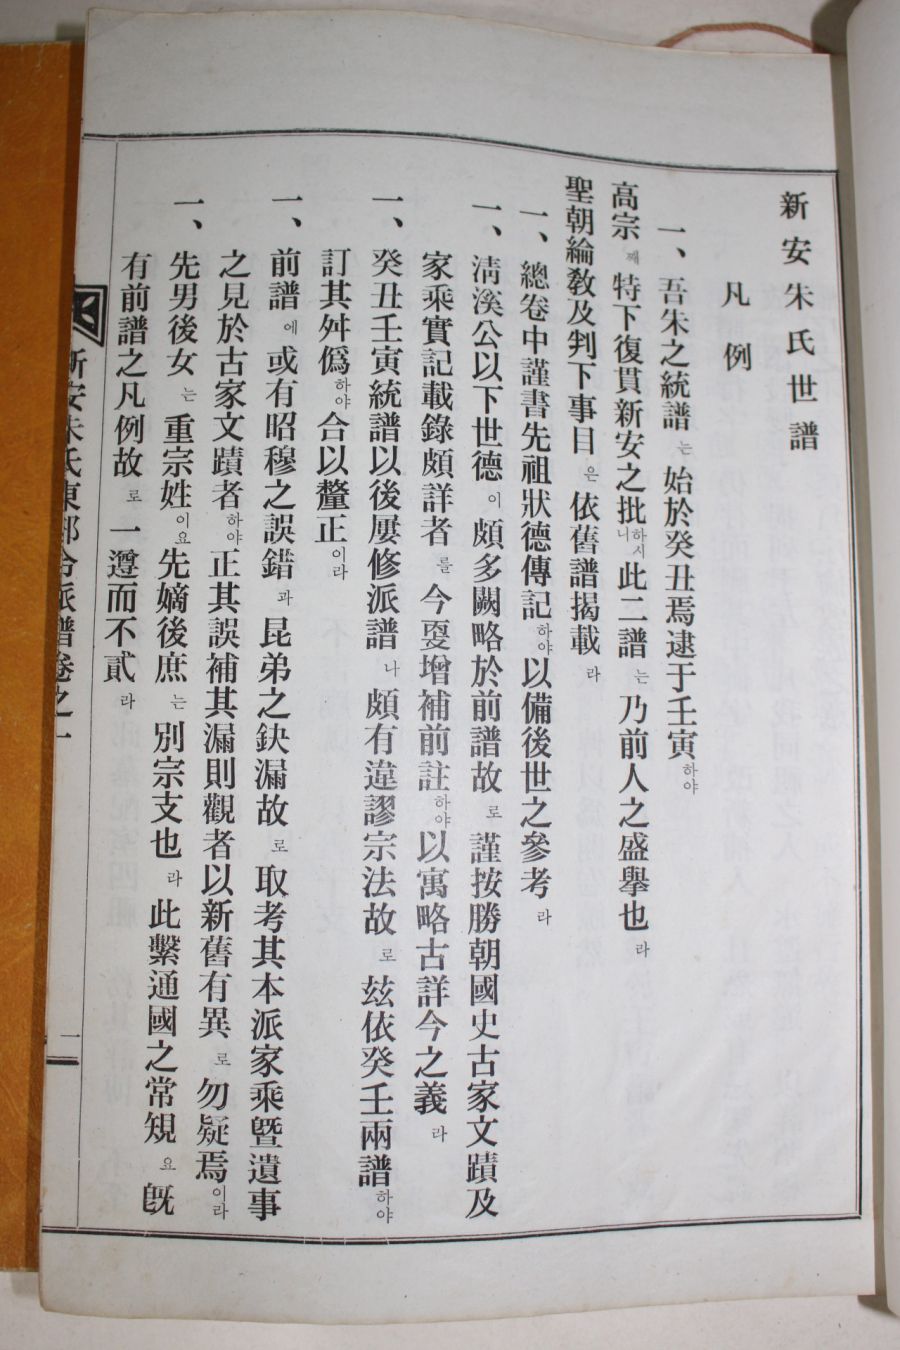 新安朱氏世譜
凡例
一、吾朱之統譜는始於癸丑焉逮于壬寅하야
高宗째特下復貫新安之批하시니此二譜는乃前人之盛擧也라
聖朝綸敎及判下事目은依舊譜揭載라
一、總卷中謹書先祖狀德傳記하야以備後世之參考라
一、淸溪公以下世德이頗多闕略於前譜故로謹按勝朝國史古家文蹟及
家乘實記載錄頗詳者를今更增補前註하야以寓略古詳今之義라
一、癸丑壬寅統譜以後屢修派譜나頗有違謬宗法故로玆依癸壬兩譜하야
訂其舛僞하야合以釐正이라
一、前譜에或有昭穆之誤錯과昆弟之缺漏故로取考其本派家乘曁遺事
之見於古家文蹟者하야正其誤補其漏則觀者以新舊有異로勿疑焉이라
一、先男後女는重宗姓이요先嫡後庶는別宗支也라此繫通國之常規요旣
有前譜之凡例故로一遵而不貳라
新安朱氏東部合派譜卷之一
一